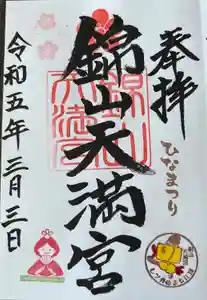 奉拝
ひなまつり
錦山天満宮
令和五年三月三日